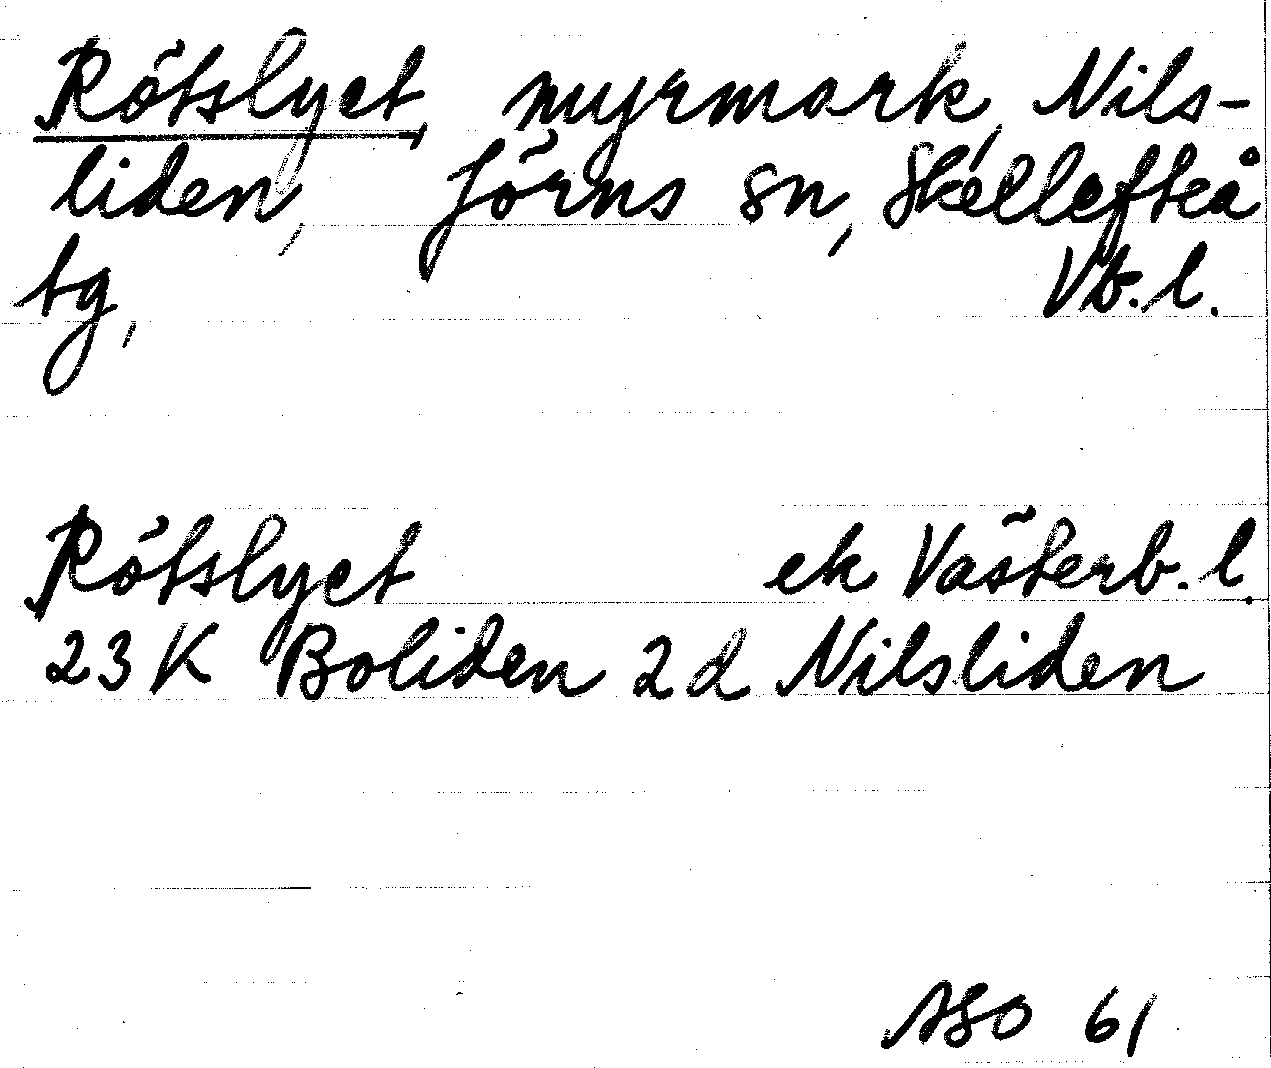 Rötslyet, myrmark, Nils-
liden, Jörns sn, Skellefteå
tg, Vb.l.
Rötslyet ek Västerb.l.
23 K Boliden 2 d Nilsliden
ASO 61